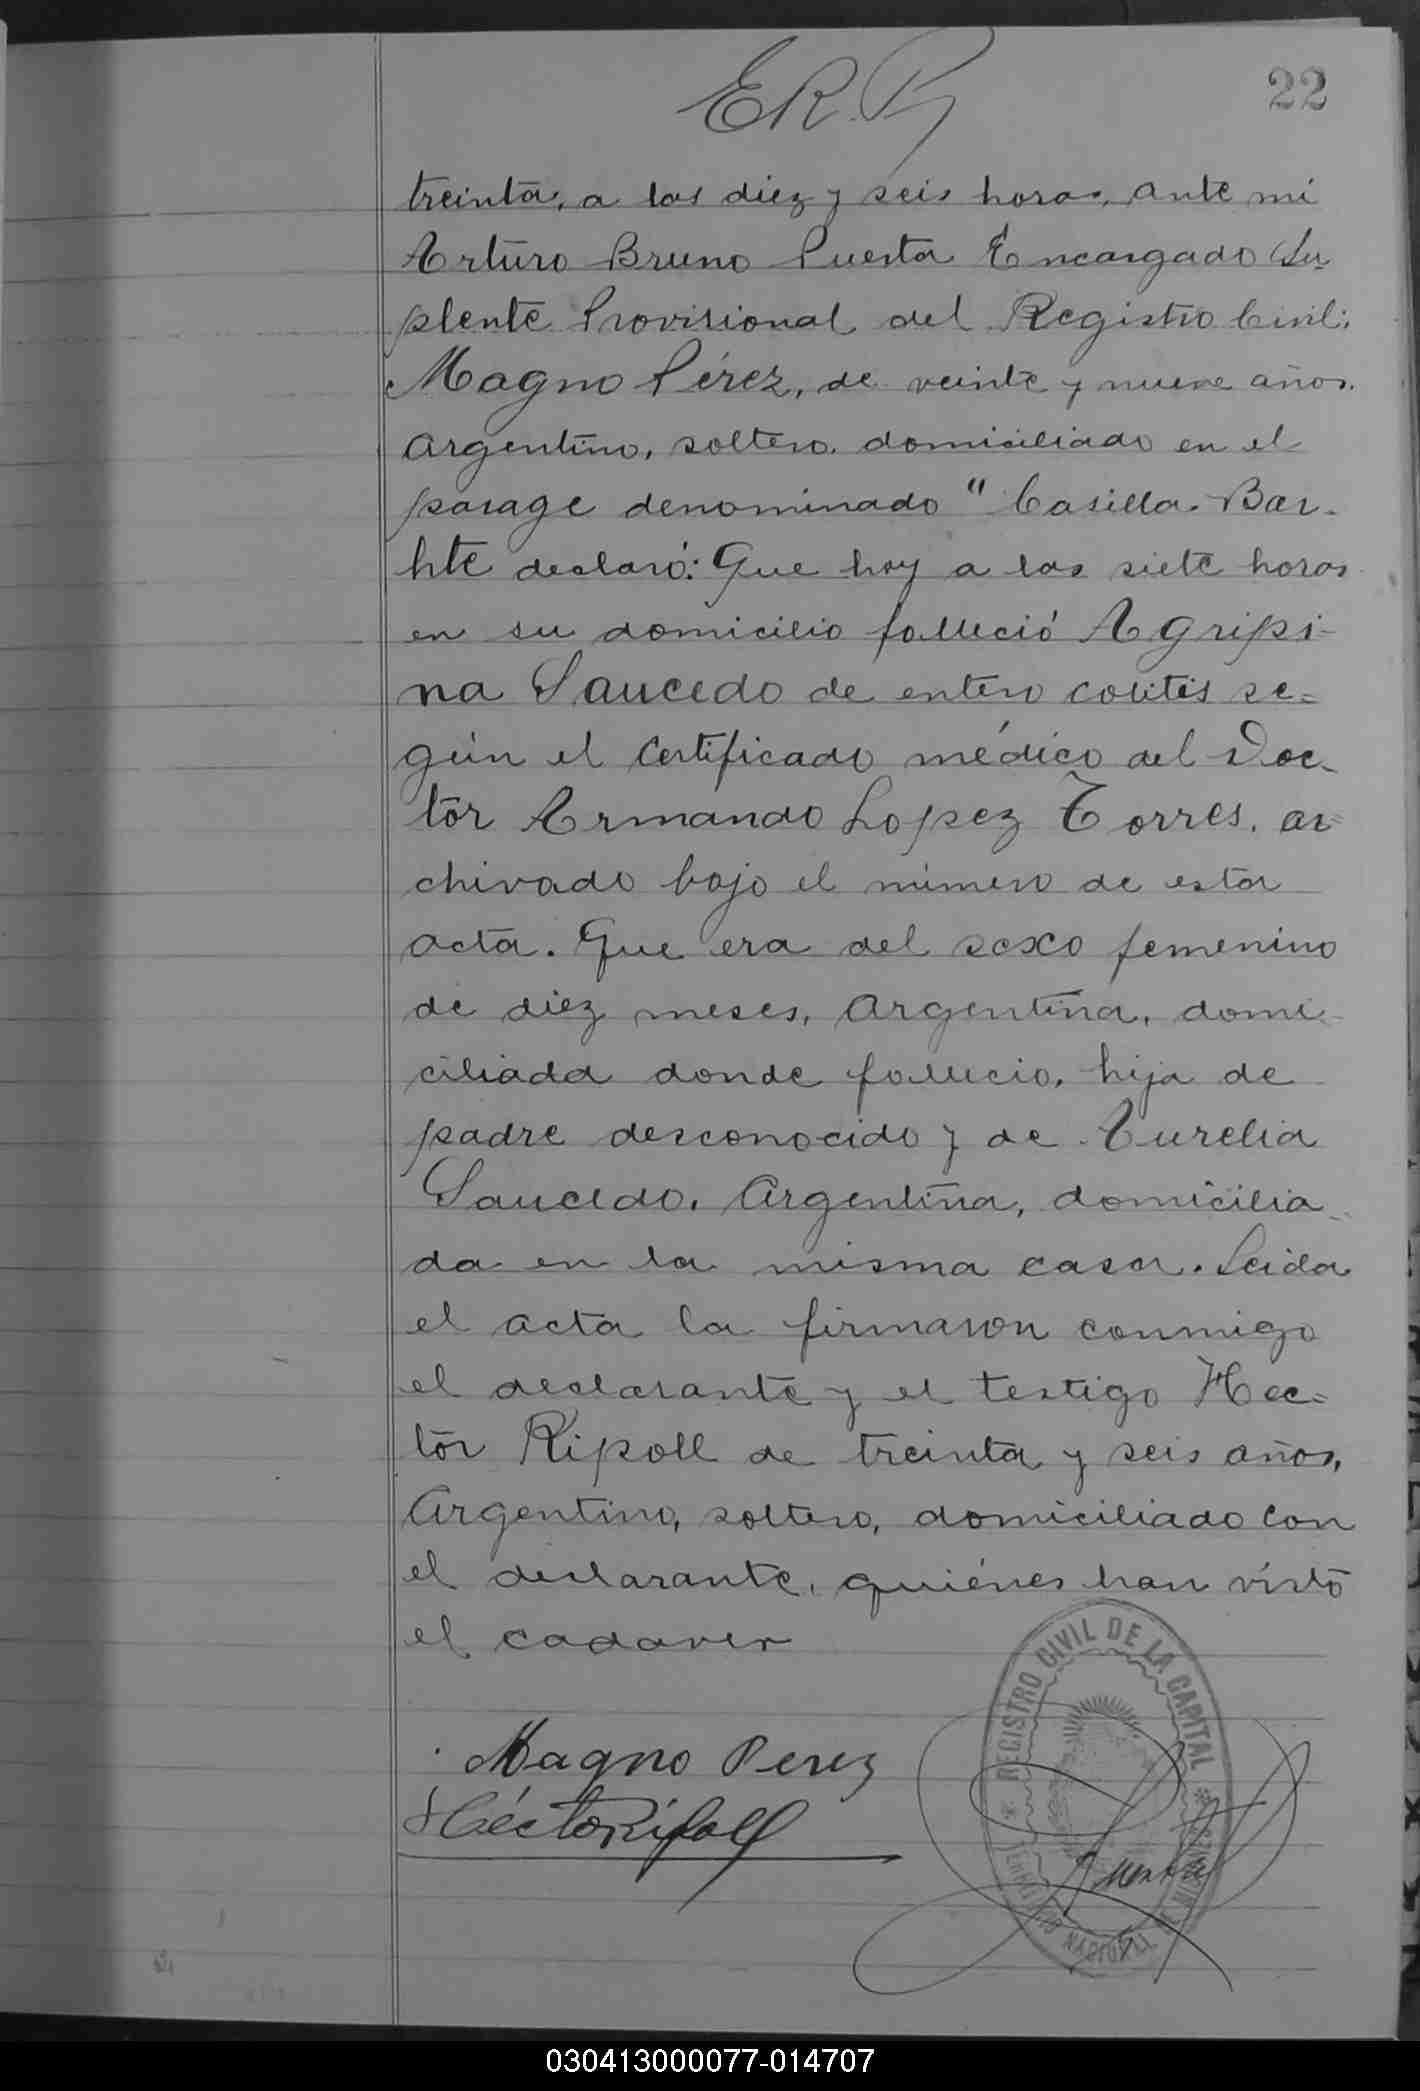 E R. P
22
treinta, a las diez y seis horas, ante mi
Arturo Bruno Puerta Encargado Su-
plente Provisional del Registro Civil:
Magno Pérez, de veinte y nueve años.
argentino, soltero. domiciliado en el
parage denominado " Casilla. Bar-
hte declaró: Que hoy a las siete horas
en su domicilio falleció Agripi-
na Saucedo de entero colitis se=
gún el Certificado médico del Doc-
tor Armando Lopez Torres, ar=
chivado bajo el número de esta
acta. Que era del sexo femenino
de diez meses, Argentina, domi-
ciliada donde fallecio, hija de
padre desconocido y de Aurelia
Saucedo, Argentina, domicilia-
da en la misma casa. Leida
el acta la firmaron conmigo
el declarante y el testigo Hec=
tor Ripoll de treinta y seis años,
Argentino, soltero, domiciliado con
el declarante, quiénes han visto
el cadaver
Magno Perez
Héctor Ripoll
REGISTRO CIVIL DE LA CAPITAL
TERRITORIO NACIONAL DE MISIONES
030413000077-014707